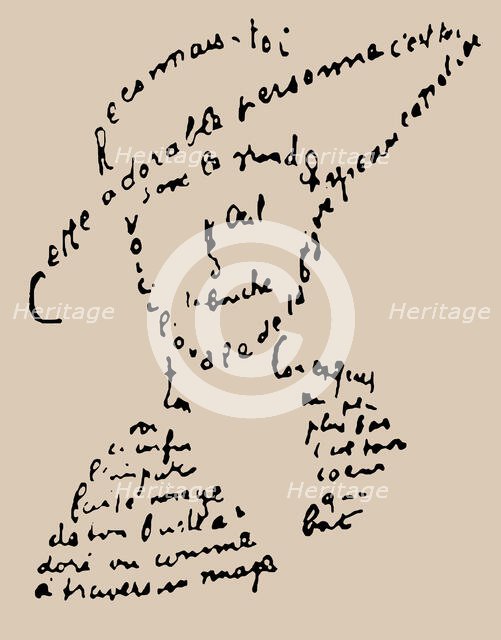 Reconnais-toi
Cette adorable personne c'est toi
Sous le grand chapeau canotier
Œil
Nez
la bouche
Voici l'ovale de ta figure
Ton
cou
exquis
Voici enfin
l'imparfaite image
de ton buste a
doré vu comme
à travers un nuage
un peu
plus bas
c'est ton
coeur
qui
bat
Heritage
Heritage
Heritage
Heritage
Heritage
Heritage